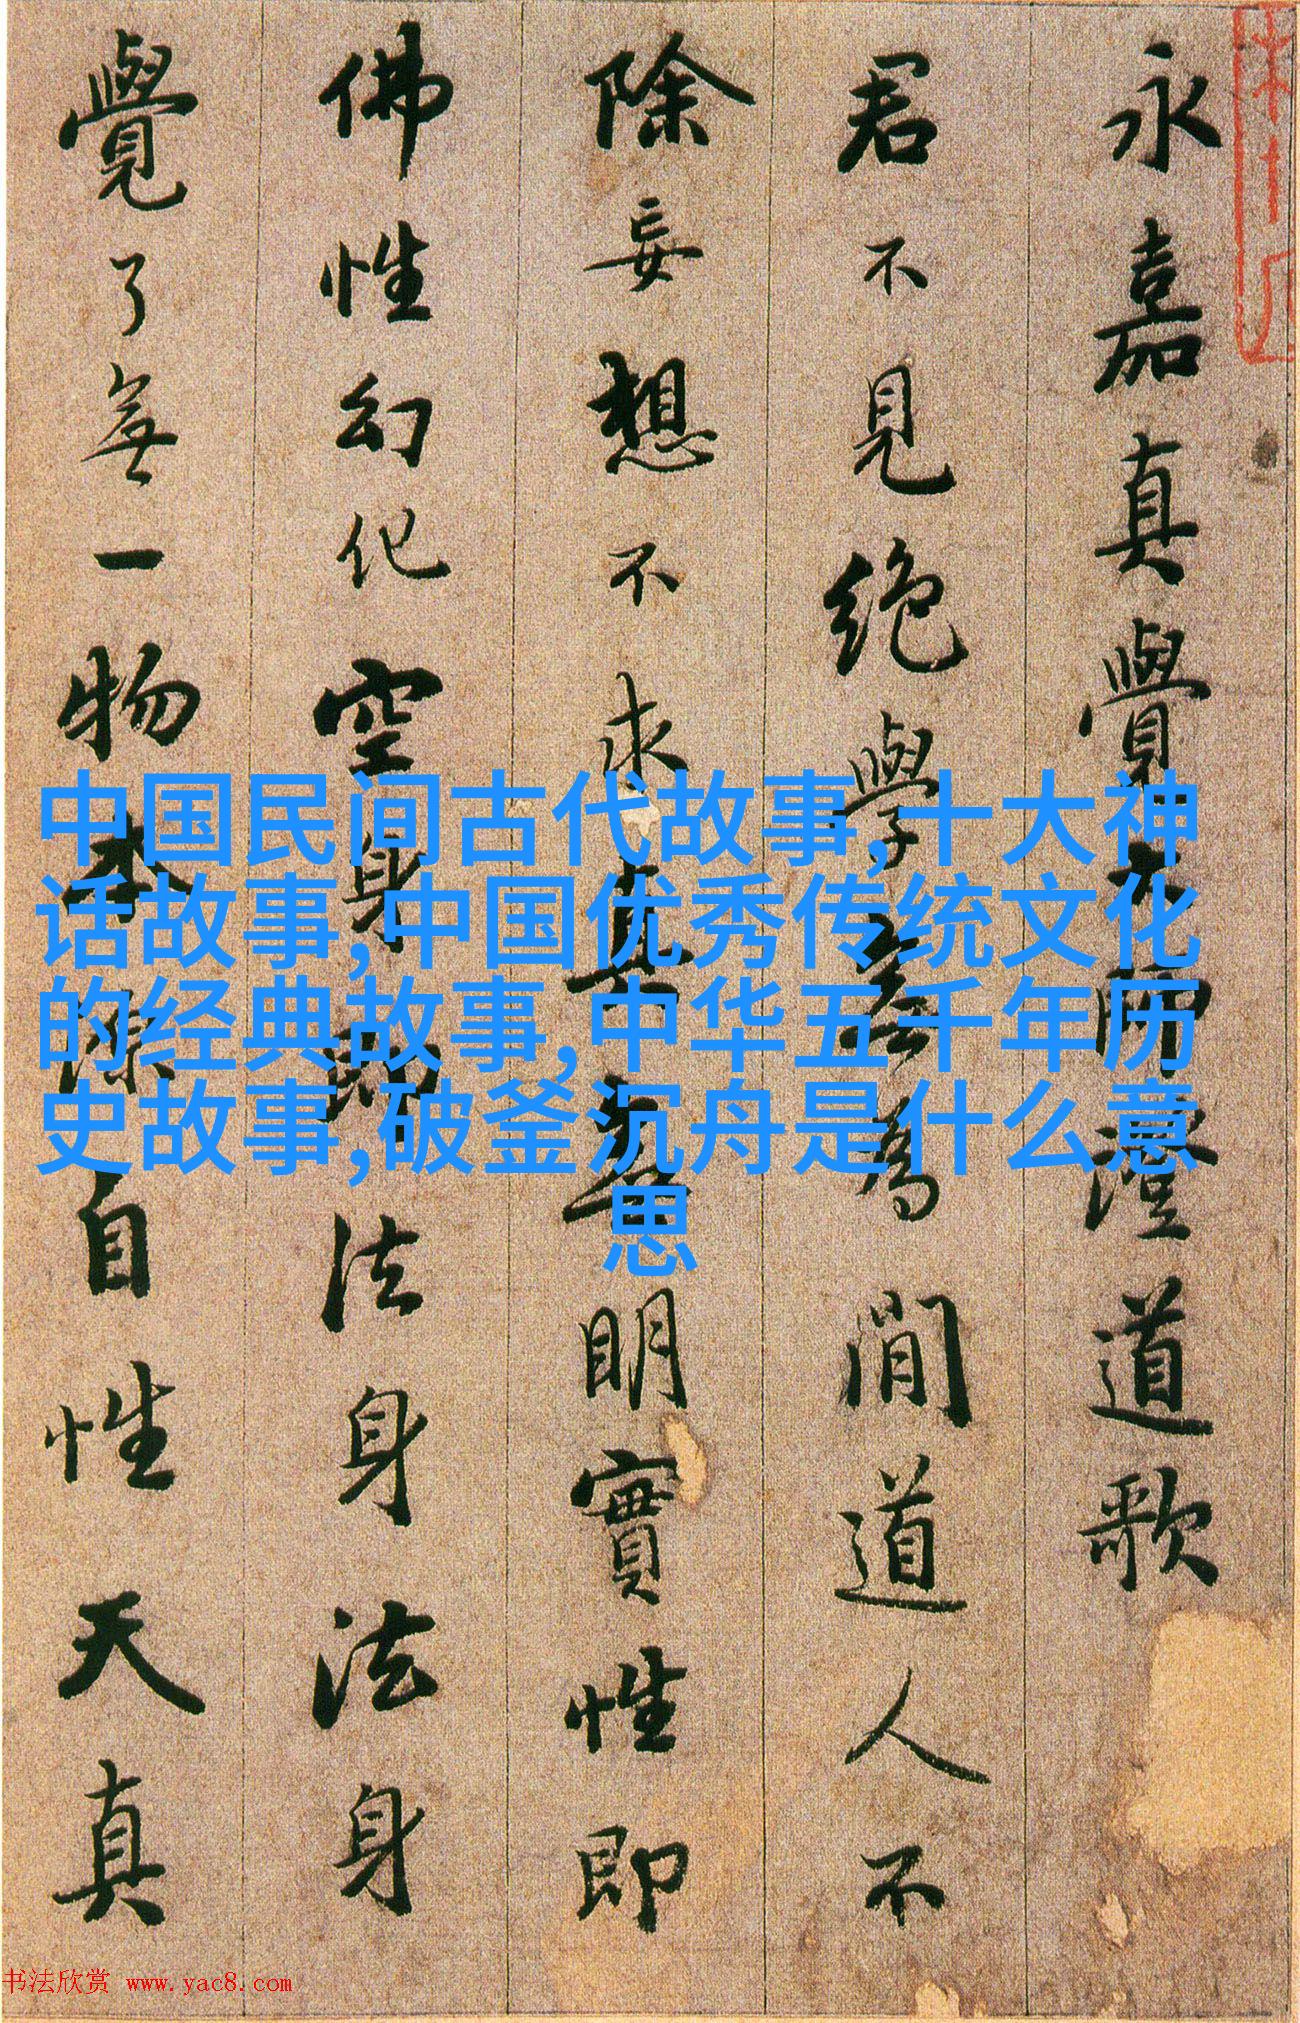 永嘉真覺大師證道歌
君不見絕學無為閒道人不
除妄想不求真無明實性即
佛性幻化空身即法身法身
覺了無一物本源自性天真
中国民间古代故事,十大神
话故事,中国优秀传统文化
的经典故事,中华五千年历
史故事,破釜沉舟是什么意
思
书法欣赏 www.yac8.com